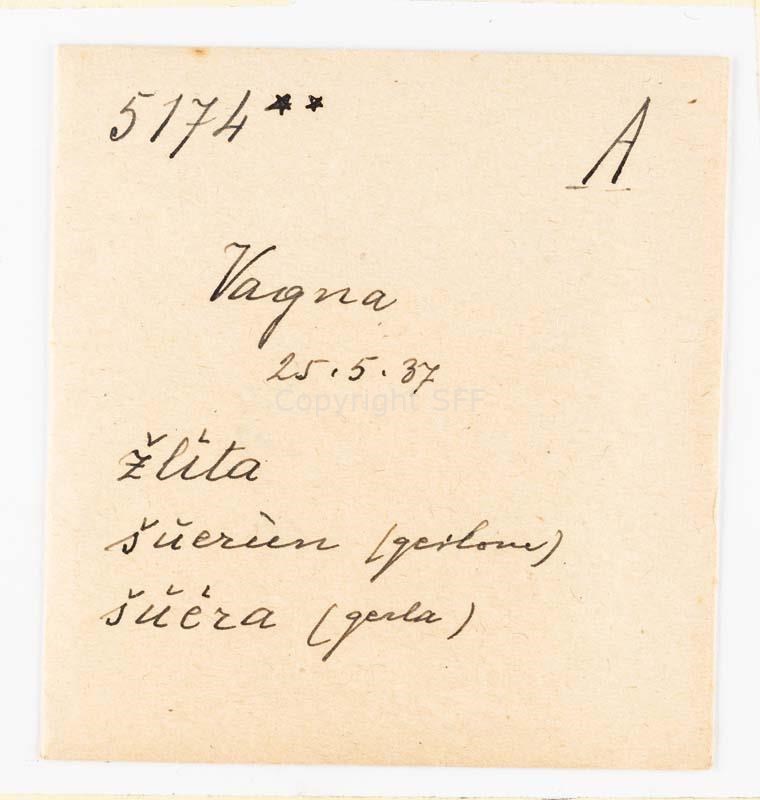 5174**
A
Vagna
25.5.37
Copyright SFF
žlìta
šŭerùn (gerlone)
šŭèra (gerla)